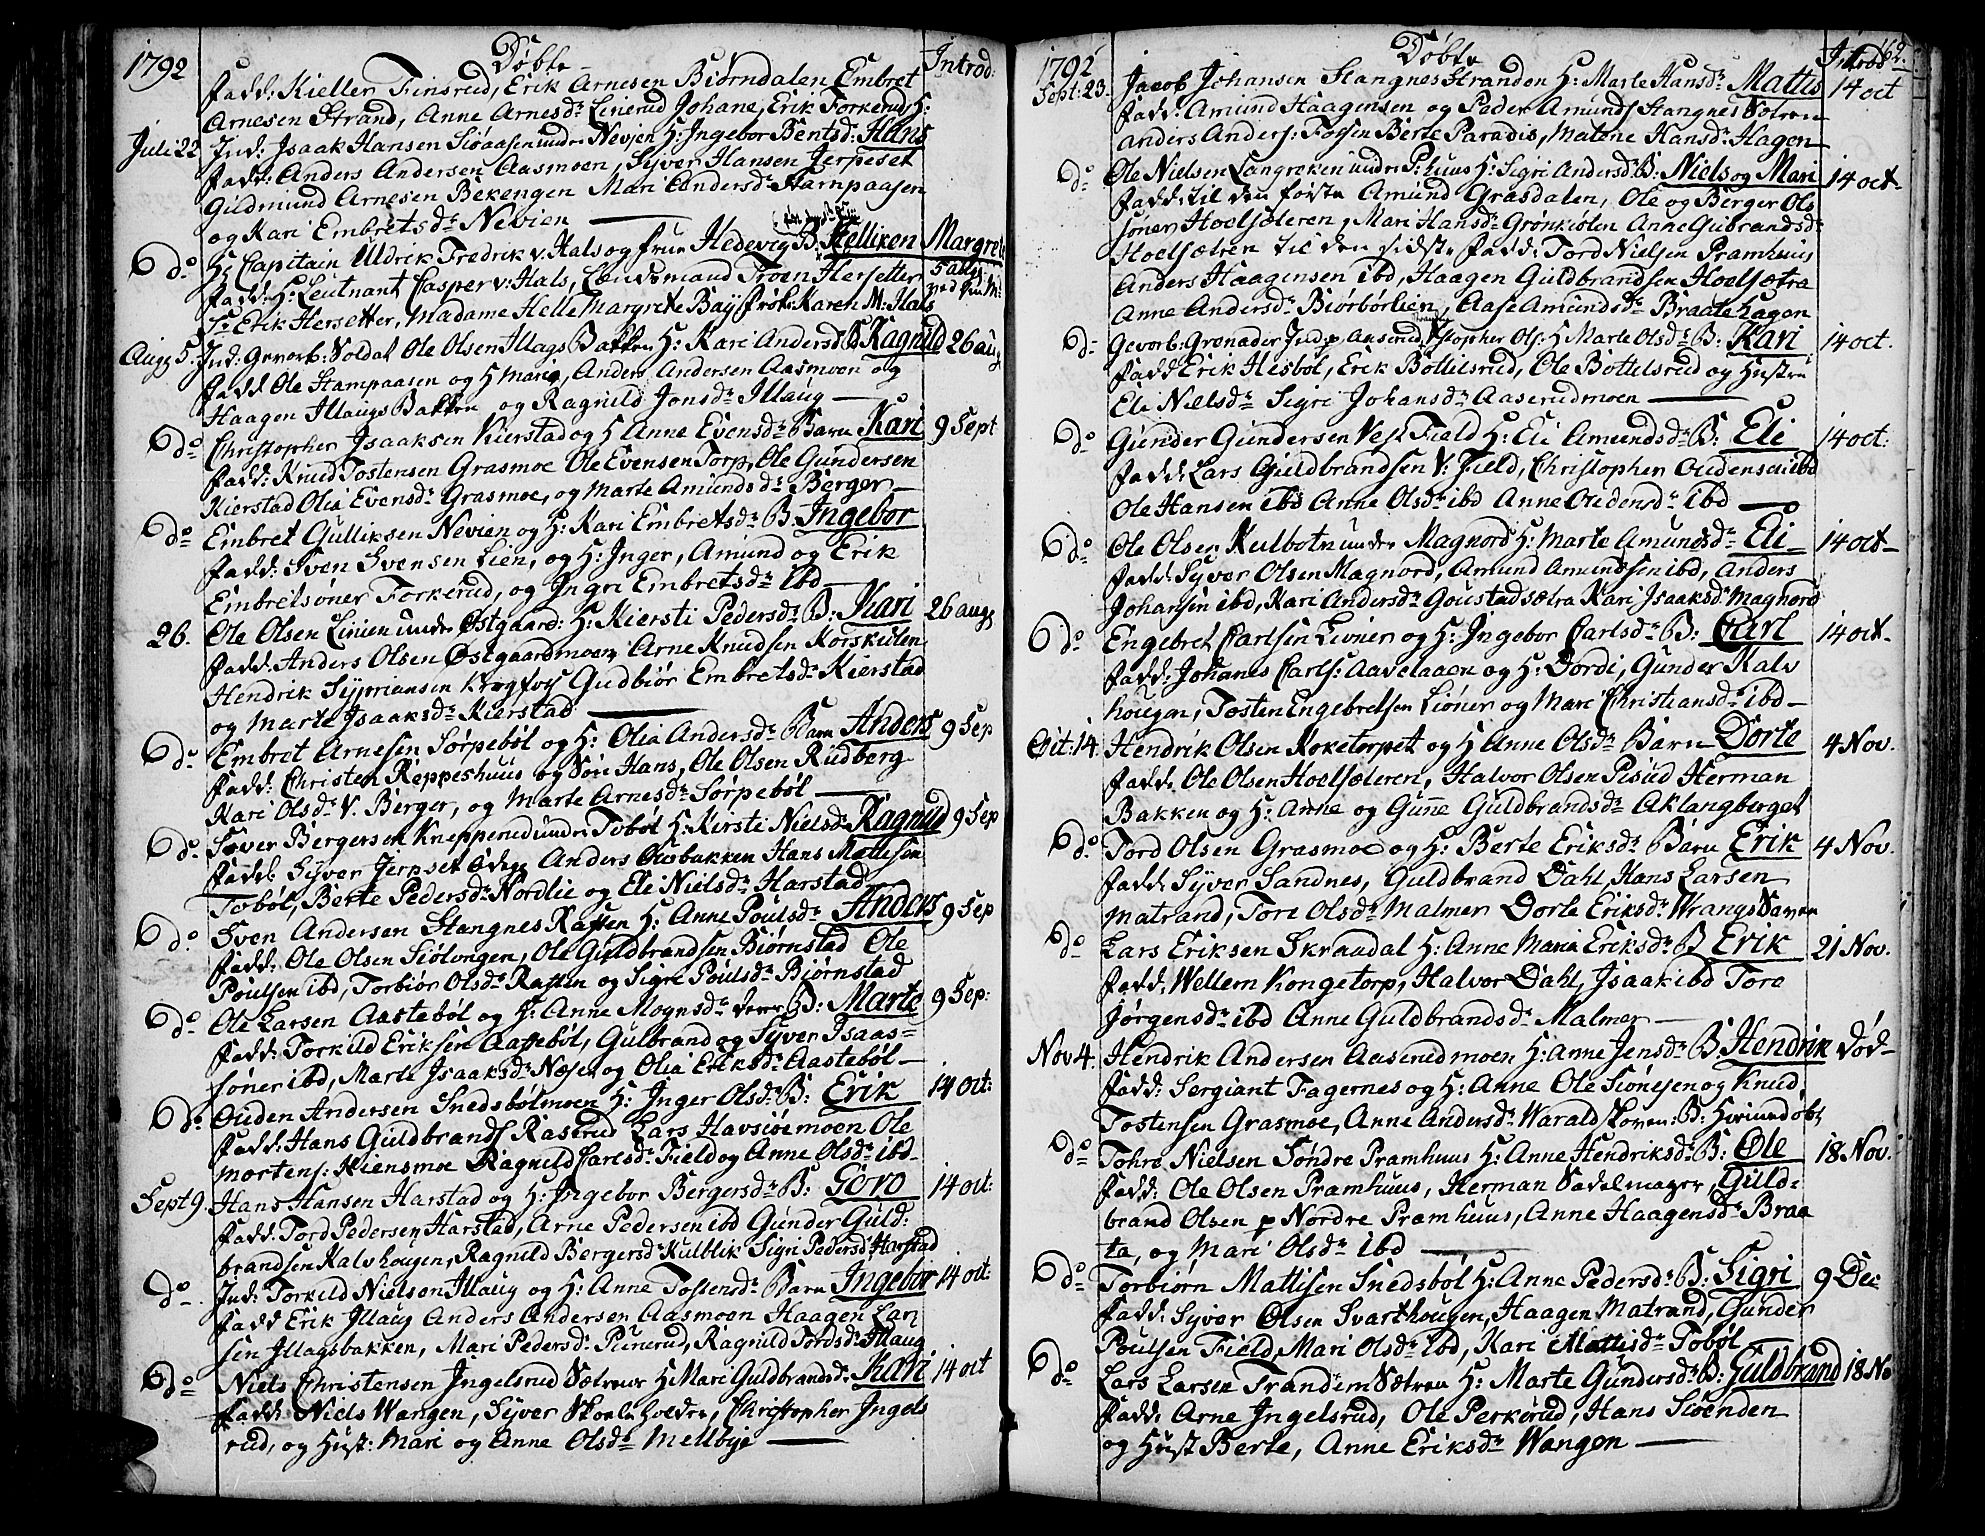 1792 Døbte Introd:
Fadd: Kieller Finsrud, Erik Arnesen Biørndalen, Embret
Arnesen Strand, Anne Arnesdr Linerud Johane, Erik Forkerud, H:
Juli 22 Ind: Isaak Hansen Siøaasen under Nevien H: Ingebor Bentsd: Hans
Fadd: Anders Andersen Aasmoen, Syver Hansen Jerpeset
Gudmund Arnesen Bekengen Mari Andersdr Stampaasen
og Kari Embretsdr Nevien
do Hr Capitain Uldrik Fredrik v. Hals og frue Hedevig B. Helliken Margrete
Fadd: H: Leutnant Casper v: Hals, Lendsmand Troen Hersetter 5 aug:
Sr Erik Hersetter, Madame Helle Margrete Bay frøk: Karen M: Hals
Aug 5. Ind: Gevorb: Soldat Ole Olsen Illags Bakken H: Kari Andersd B Ragnild 26 aug
Fadd Ole Stampaasen og H Maria, Anders Andersen Aasmoen og
Haagen Illaugs Bakken og Ragnild Jonsdr Illaug
do Christopher Isaaksen Kierstad og H Anne Evensdr Barn Kari 9 Sept
Fadd: Knud Tostensen Grasmoe Ole Evensen Torp, Ole Gundersen
Kierstad Olia Evensdr Grasmoe, og Marte Amundsdr Berger
do Embret Gulliksen Nevien og H: Kari Embretsdr B. Ingebor
Fadd: Sven Svensen Lien, og H: Inger, Amund og Erik
Embretsøner Forkerud, og Ingri Embretsdr ibd
26. Ole Olsen Linien under Østgaard: H: Kiersti Pedersdr B: Kari 26 aug
Fadd: Anders Olsen Østgaardmoen, Arne Knudsen Korskiølen
Hendrik Sypriansen Krogfos Gudbiør Embretsdr Kierstad
og Marte Isaaksdr Kierstad
do Embret Arnesen Sørpebøl og H: Olia Andersdr Barn Anders 9 Sep
Fadd: Christen Reppeshuus og Søn Hans, Ole Olsen Rudberg
Kari Olsdr V. Berger, og Marte Arnesdr Sørpebøl
do Sæver Bergersen Knepperud under Tobøl H: Kirsti Nielsdr Ragnild 9 Sep
Fadd: Syver Jerpset Anders Bakken Hans Mattisen
Tobøl, Berte Pedersdr Nordlie og Eli Nielsdr Harstad
do Sven Andersen Stangnes Raften H: Anne Poulsdr Anders 9 Sep
Fadd: Ole Olsen Siølvongen, Ole Guldbrandsen Biørnstad Ole
Poulsen ibd, Torbiør Olsdr Raften og Sigri Poulsdr Bjørnstad
do Ole Larsen Aastebøl og H: Anne Mognsdr B: Marte 9 Sep:
Fadd: Torkild Eriksen Aastebøl, Gulbrand og Syver Isaas=
søner ibd, Marte Isaaksdr Næser og Olia Eriksdr Aastebøl
do Ouden Andersen Snedsbølmoen H: Inger Olsdr B: Erik 14 Oct:
Fadd: Hans Guldbrands Rasrud Lars Havsiøemoen Ole
Mortens: Kiensmoe Ragnild Carlsdr Field og Anne Olsdr ibd
Sept 9. Hans Hansen Harstad og H: Ingebor Bergersdr B: Goro 14 oct:
Fadd: Tord Pedersen Harstad, Arne Pedersen ibd Gunder Guld:
brandsen Kalvhougen, Ragnild Bergersdr Kulblik Sigri Pedersd Harstad
do Ind: Torkild Nielsen Illaug og H: Anne Tostensdr Barn Ingebor 14 oct:
Fadd Erik Illaug Anders Andersen Aasmoen Haagen Lar
sen Illagsbakken, Mari Pedersdr Punerud, Ragnild Tordsdr Illaug
do Niels Christensen Ingelsrud Sætren H Mari Guldbrandsdr Kari 14 oct
Fadd: Niels Wangen, Syver Skoeleholder, Christopher Ingels
rud, og Hust: Mari og Anne Olsdr Mellbye
1792 Døbte Introd 162.
Sept: 23. Jacob Johansen Stangnes Stranden H: Marte Hansdr Mattis 14 oct
Fadd: Amund Haagensen og Peder Amunds Stangnes Sætren
Anders Anders: Fossen Berte Paradis, Malene Hansdr Hagen
do Ole Nielsen Langreken under Pr:huus H: Sigri Andersd B: Niels og Mari 14 oct
Fadd: til den første Amund Grasdalen, Ole og Berger Ols
søner Hoelsæteren, Mari Hansdr Grønkiølen Anne Gubrandsdr
Hoelsætren til den sidste Fadd: Tord Nielsen Pramhuus
Anders Haagensen ibd, Haagen Guldbrandsen Hoelsætra
Anne Andersdr Biørbørlien, Aase Amundsdr Braate hagen
do Gevorb: Grenader Ind: p Anserud Kstopher Ols: H Marte Olsdr B: Kari 14 oct.
Fadd Erik Hesbøl, Erik Bottelsrud, Ole Bottelsrud og Hustru
Eli Nielsdr Sigri Johansdr Aaserudmoen
do Gunder Gundersen Vest Field H: Eli Amundsdr B: Eli 14 oct:
Fadd: Lars Guldbrandsen V: Field, Christopher Oudensen ibd
Ole Hansen ibd Anne Olsdr ibd Anne Oudensdr ibd
do Ole Olsen Kulboten under Magnord H: Marte Amundsdr Eli 14 oct
Fadd: Syver Olsen Magnord, Amund Amundsen ibd, Anders
Johansen ibd, Kari Andersdr Goustadsætra Kari Isaaksdr Magnord
do Engebret Carlsen Lioner og H: Ingebor Carlsdr B: Carl 14 oct
Fadd: Johanes Carls: Aavelaaen og H: Dordi, Gunder Kalv
hougen, Tosten Engebretsen Liøner og Mari Christiansdr ibd
Oct: 14. Hendrik Olsen Koketorpet og H Anne Olsdr Barn Dorte 4 Nov.
Fadd: Ole Olsen Hoelsæteren, Halvor Olsen Pisud Herman
Bakken og H: Anne og Gunne Guldbrandsdr Aklangberget
do Tord Olsen Grasmoe og H: Berte Eriksdr Barn Erik 4 Nov.
Fadd: Syver Sandnes, Guldbrand Dahl, Hans Larsen
Matrand, Tore Olsdr Malmer Dorte Eriksdr Wrangs Saven
do Lars Eriksen Skraadal H: Anne Maria Eriksdr B Erik 21 Nov.
Fadd: Wellem Kongetorp, Halvor Dahl, Isaak ibd Tore
Jørgensdr ibd Anne Guldbrandsdr Malmer
Nov 4. Hendrik Andersen Aaserudmoen H: Anne Jensdr B. Hendrik Død
Fadd: Sergiant Fagernes og H: Anne Ole Siønesen og Knud
Tostensen Grasmoe, Anne Andersdr Warald skoven: B: Hiemdøbt
do Tohre Nielsen Søndre Pramhuus H: Anne Hendriksdr B: Ole 18 Nov.
Fadd: Ole Olsen Pramhuus, Herman Sadelmager, Guld=
brand Olsen p Nordre Pramhuus, Anne Haagensdr Braa
ta, og Mari Olsdr ibd
do Torbiørn Mattisen Snedsbøl H: Anne Pedersdr B: Sigri 9 Dec
Fadd: Syver Olsen Svarthougen, Haagen Matrand, Gunder
Poulsen Field, Mari Olsdr ibd, Kari Mattisdr Tobøl
do Lars Larsen Trandem Sætren H: Marte Gundersdr B: Guldbrand 18 No
Fadd: Arne Ingelsrud, Ole Perkerud, Hans Siøenden
og Hust Berte, Anne Eriksdr Wangen